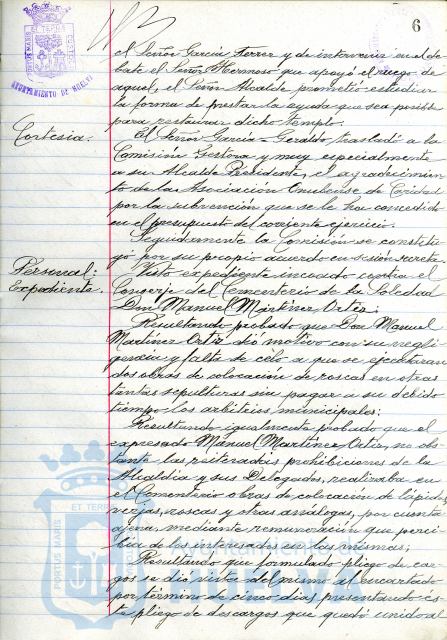 6
AYUNTAMIENTO DE HUELVA
el Señor García Ferrer y de intervenir en el de
bate el Señor Hermoso que apoyó el ruego de
aquel, el Señor Alcalde prometió estudiar
la forma de prestar la ayuda que sea posible
para restaurar dicho templo.
Cortesía.
El Señor García-Geraldo, trasladó a la
Comisión Gestora y muy especialmente
a su Alcalde Presidente, el agradecimien
to de la Asociación Onubense de Caridad
por la subvención que se le ha concedido
en el presupuesto del corriente ejercicio.
Seguidamente la Comisión se constitu
yó por su propio acuerdo en sesión secreta.
Personal:
Expediente.
Visto expediente incoado contra el
Conserje del Cementerio de la Soledad
Don Manuel Martínez Ortiz;
Resultando probado que Don Manuel
Martínez Ortiz dió motivo con su negli
gencia y falta de celo a que se ejecutaran
dos obras de colocación de roscas en otras
tantas sepulturas sin pagar a su debido
tiempo los arbitrios municipales;
Resultando igualmente probado que el
expresado Manuel Martínez Ortiz, no obs
tante las reiteradas prohibiciones de la
Alcaldía y sus Delegados, realizaba en
el Cementerio obras de colocación de lápidas,
verjas, roscas y otras análogas, por cuenta
ajena, mediante remuneración que perci
bía de los interesados en las mismas;
Resultando que formulado pliego de car
gos se dió vista del mismo al encartado
por término de cinco días presentando és
te pliego de descargos que quedó unido al
PORTUS MARIS ET TERRE
Ayuntamiento de